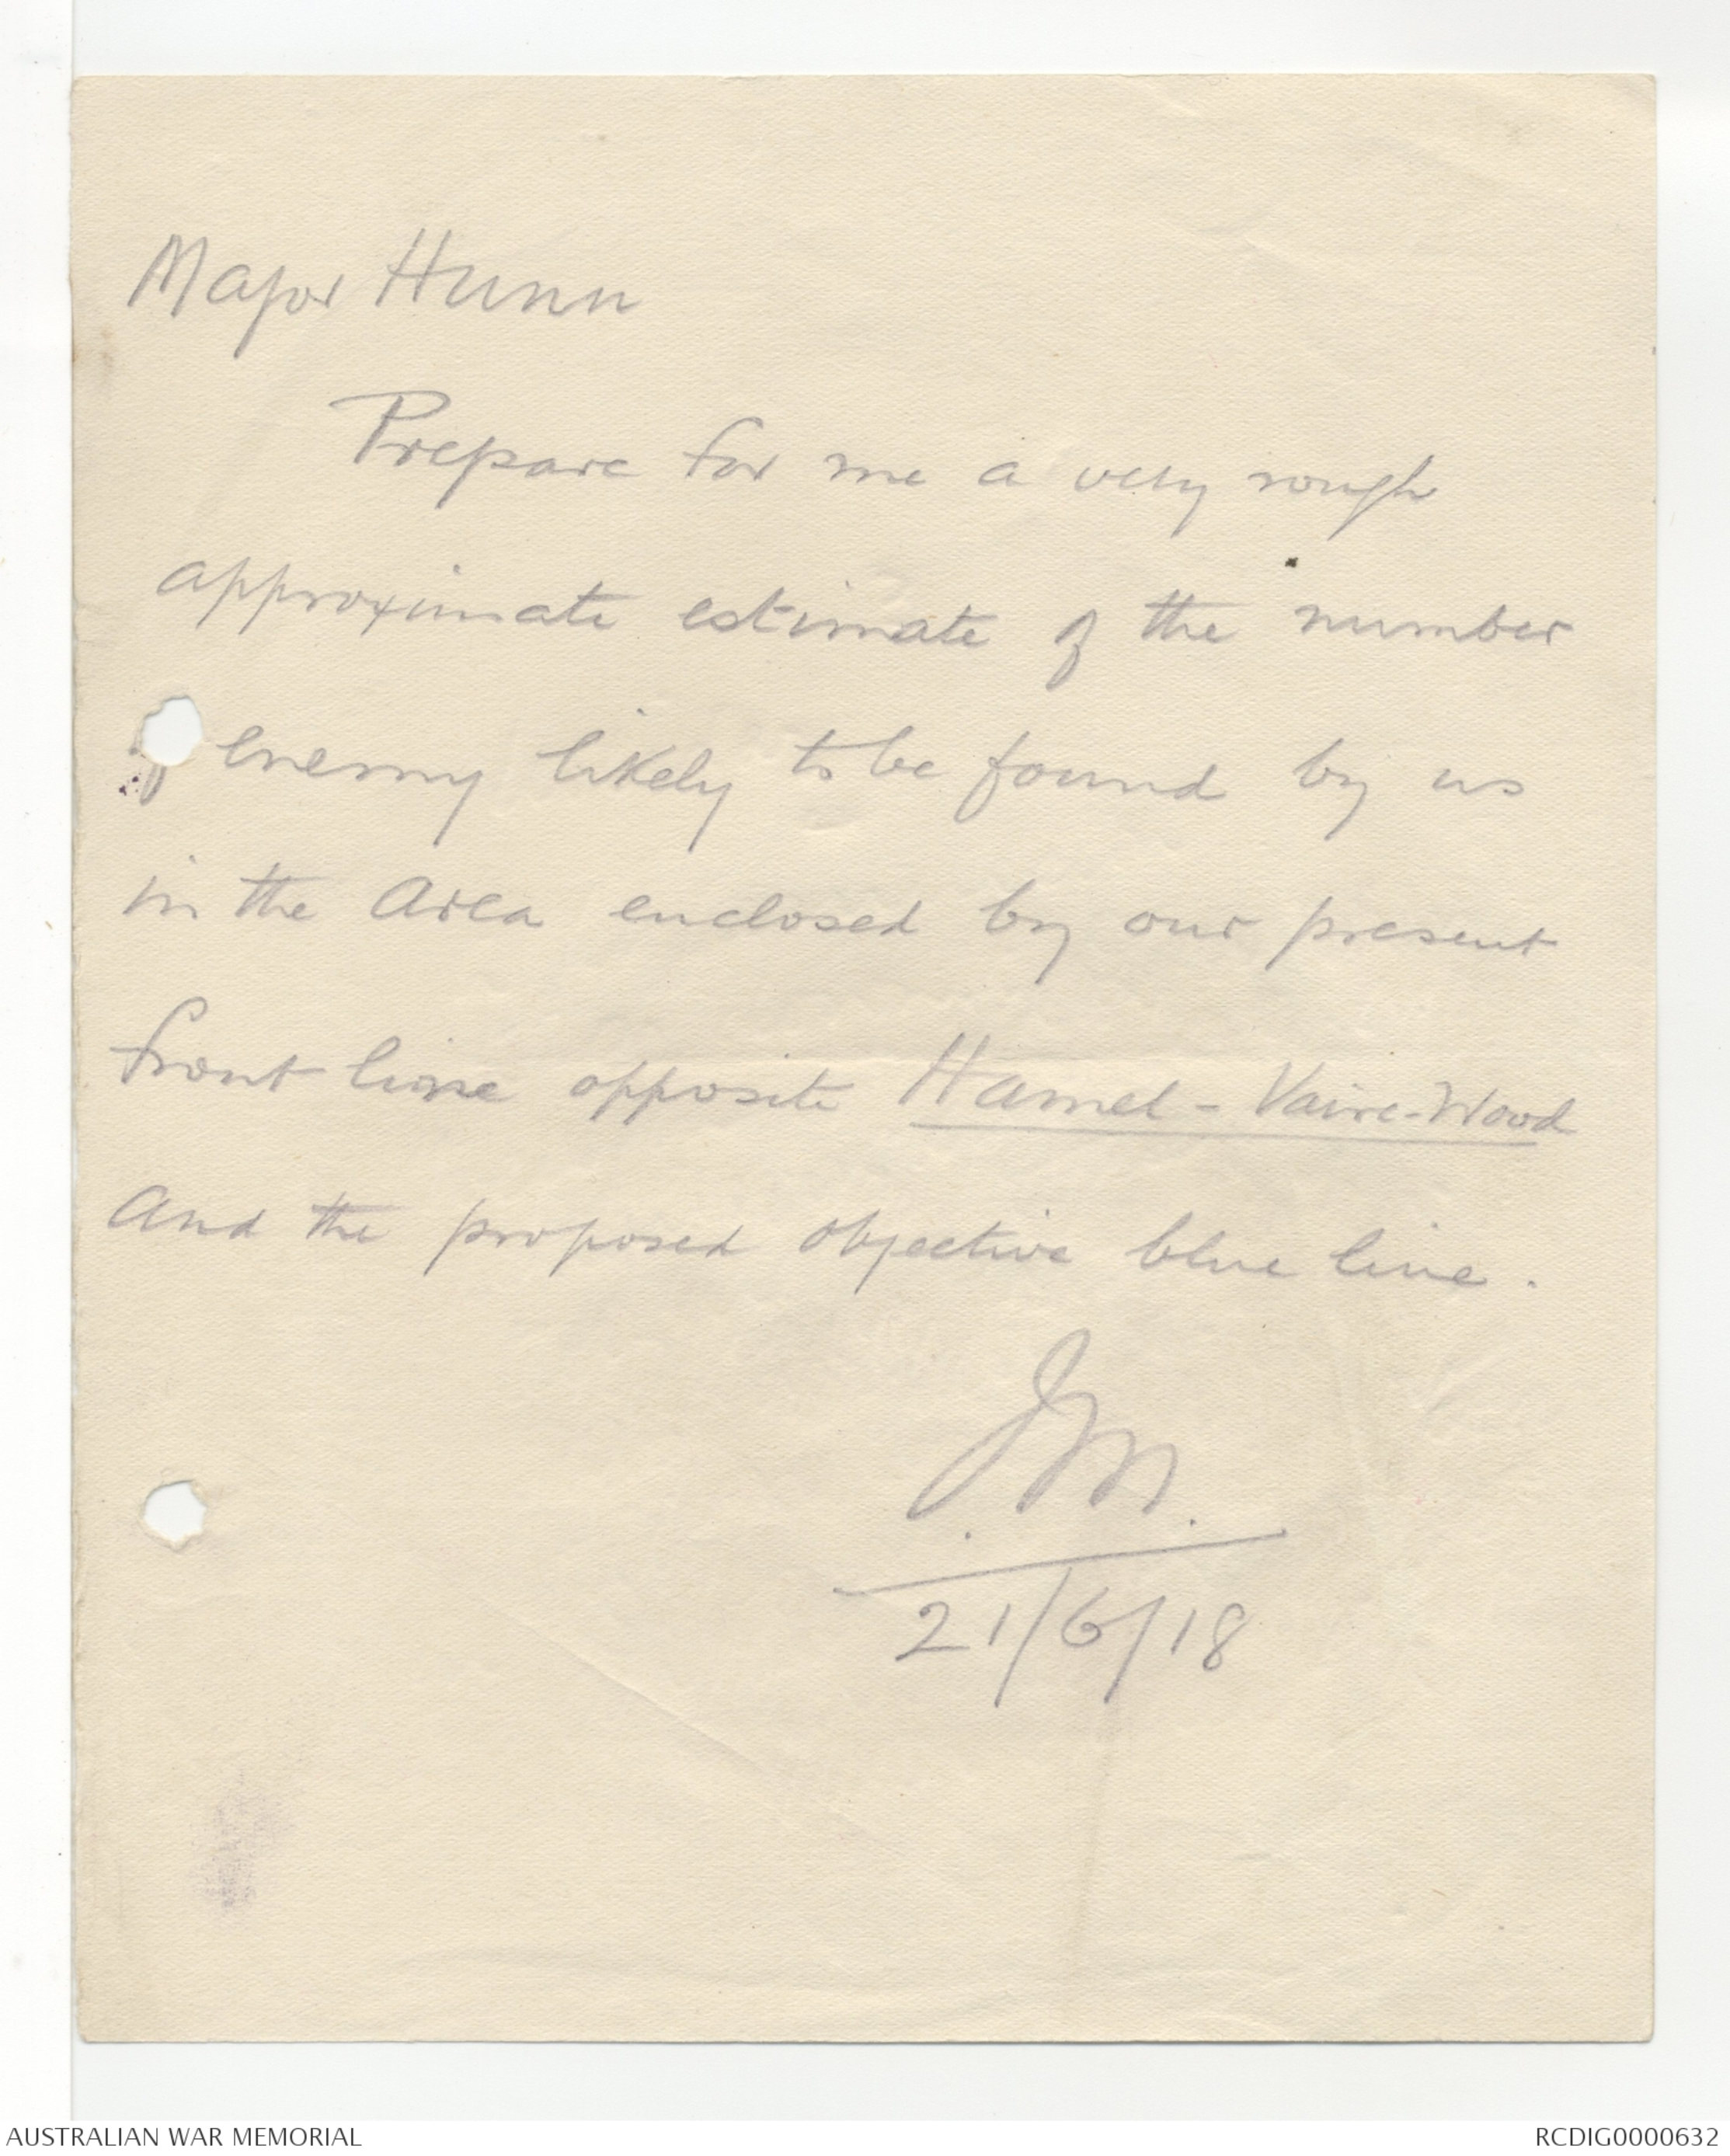 Major Hunn
Prepare for me a very rough
approximate estimate of the number
of enemy likely to be found by us
in the area enclosed by our present
front line opposite Hamel - Vaire-Wood
and the proposed objective blue line.
J.M.
21/6/18
AUSTRALIAN WAR MEMORIAL
RCDIG0000632